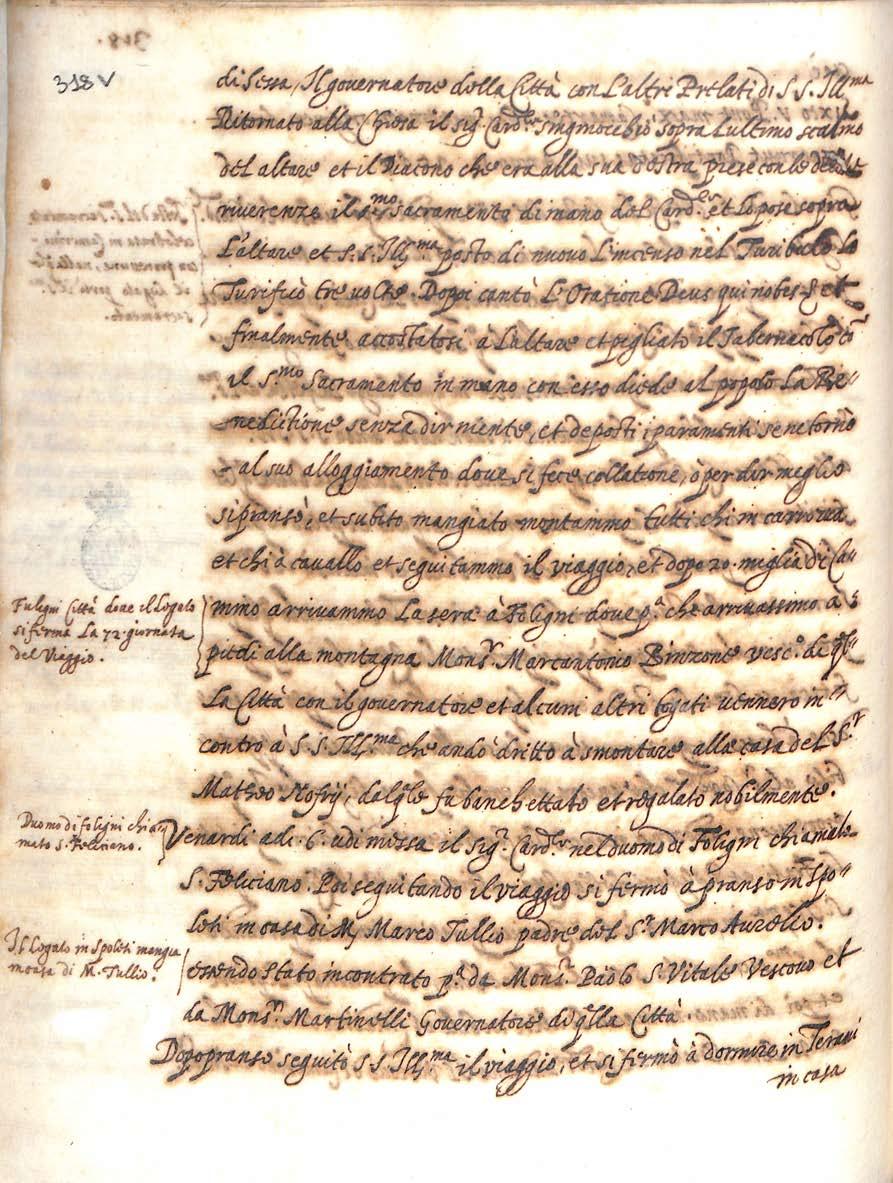 318 v
di Sessa, Il governatore della Città con l'altri Prelati di S. S. Ill.ma
Ritornato alla Chiesa il sig.r Card.le s'inginocchiò sopra l'ultimo scalino
del altare et il Diacono che era alla sua destra prese con le debite
riverenze il s.mo sacramento di mano del Card.le et lo pose sopra
L'altare et S. S. Ill.ma posto di nuovo l'incenso nel Turibulo lo
Turificò tre volte. Doppi cantò L'Oratione Deus qui nobis &. et
finalmente accostatosi à l'altare et pigliato il Tabernacolo cō
il S.mo Sacramento in mano con esso diede al popolo La Be//
nedictione senza dir niente, et deposti i paramenti se ne tornò
al suo alloggiamento dove si fece collatione, ò per dir meglio
si pransò, et subito mangiato montammo tutti chi in carrozza
et chi à cavallo et seguitammo il viaggio, et dopo 20 miglia di Ca//
Fuligni Città dove il Legato
si ferma La 72. giornata
del Viaggio.
mmo arrivammo La sera à Foligni dove p.a che arrivassimo à
piedi alla montagna Mons.r Marcantonio Binzone vesc.o di q̄l//
La Città con il governatore et alcuni altri togati vennero in//
contrò à S. S. Ill.ma che andò dritto à smontare alla casa del S.r
Matheo Nofrij, dal q̄le fu banchettato et regalato nobilmente.
Duomo di foligni chia//
mato S. Feliciano.
Venardi adi .6. udi messa il sig.r Card.le nel duomo di Foligni chiamato
S. Feliciano. Poi seguitando il viaggio si fermò à pranso in Spo//
leti in casa di M. Marco Tullio padre del S.r Marco Aurelio.
Il Legato in Spoleti mangia
in casa di M. Tullio.
essendo stato incontrato p.a da Mons.r Paolo S. Vitale Vescovo et
da Mons.r Martinelli Governatore di q̄lla Città.
Dopo pranso seguitò S. S. Ill.ma il viaggio, et si fermò à dormire in Terani
in casa